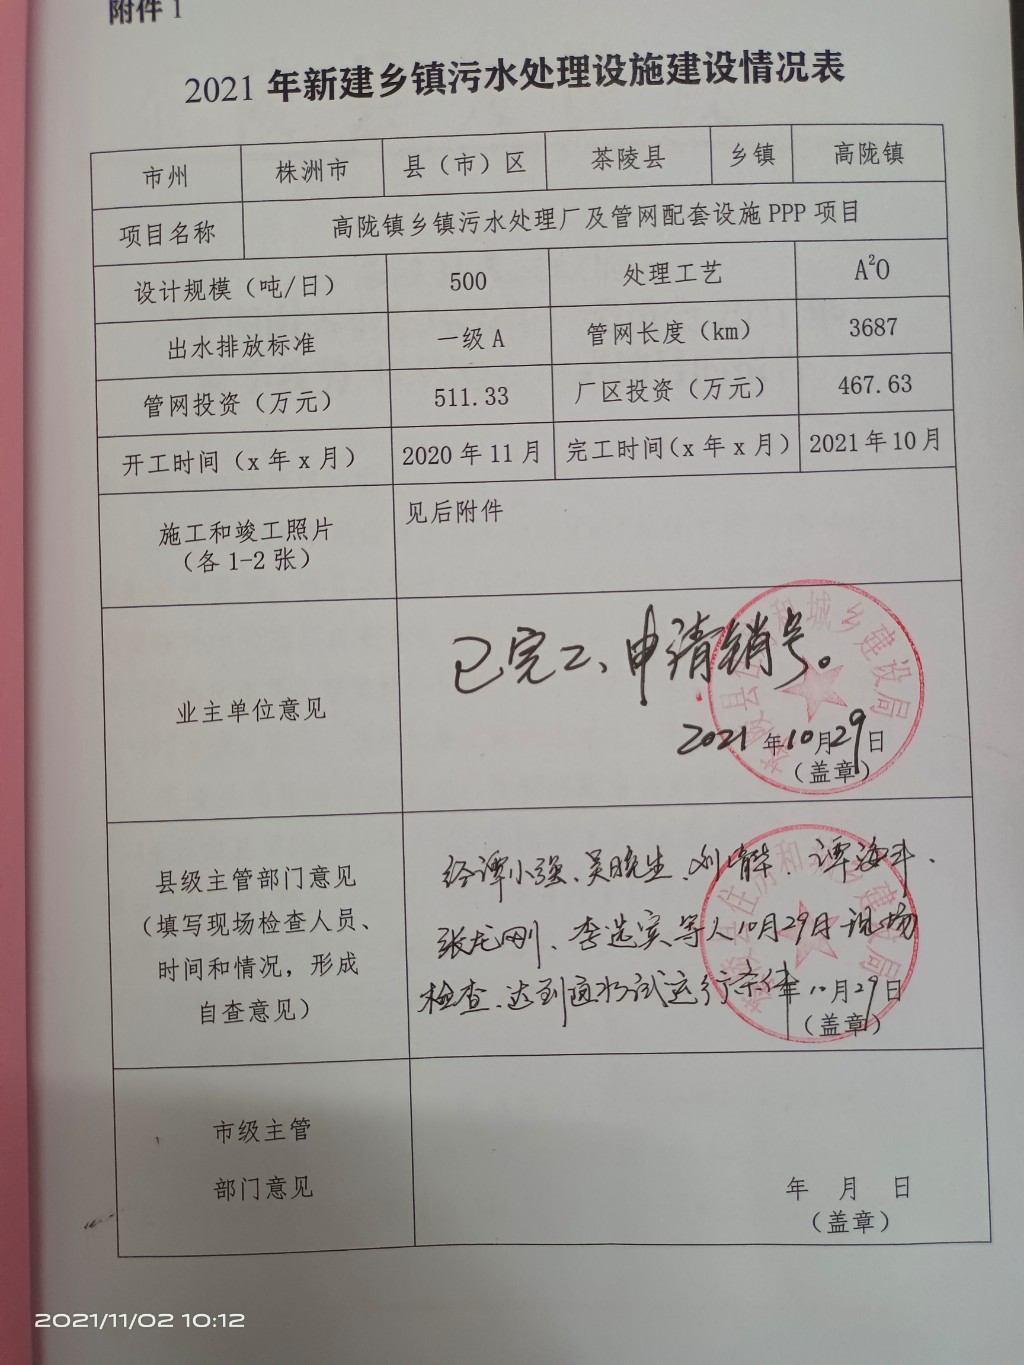 附件 1
2021 年新建乡镇污水处理设施建设情况表
市州 株洲市 县（市）区 茶陵县 乡镇 高陇镇
项目名称 高陇镇乡镇污水处理厂及管网配套设施 PPP 项目
设计规模（吨/日） 500 处理工艺 A²O
出水排放标准 一级 A 管网长度（km） 3687
管网投资（万元） 511.33 厂区投资（万元） 467.63
开工时间（x 年 x 月） 2020 年 11 月 完工时间（x 年 x 月） 2021 年 10 月
施工和竣工照片
（各 1-2 张）
见后附件
业主单位意见
已完工、申请销号。
2021 年 10 月 29 日
（盖章）
县级主管部门意见
（填写现场检查人员、
时间和情况，形成
自查意见）
经谭小强、吴晓生、刘 谭海
张龙刚、李选宾等人10月29日现场
检查、达到通水试运行条件
年 10 月 29 日
（盖章）
市级主管
部门意见
年 月 日
（盖章）
住房和城乡建设局
2021/11/02 10:12